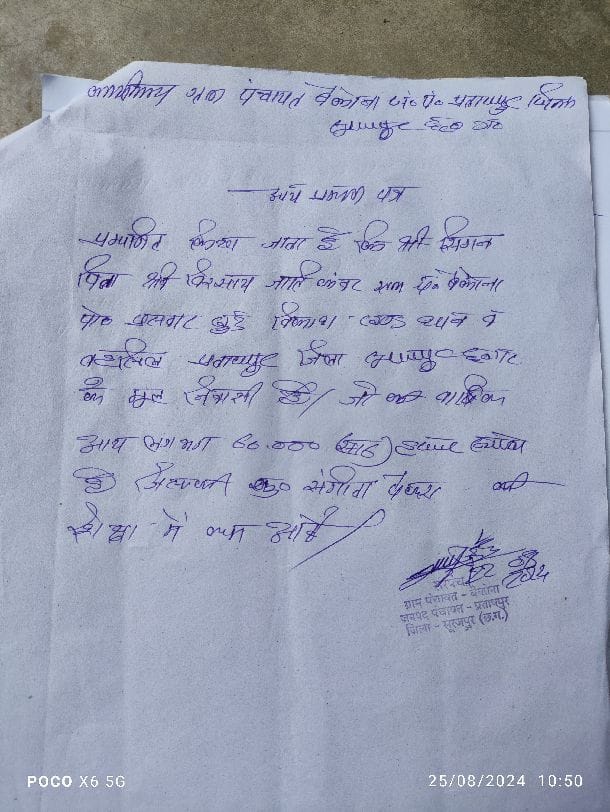 कार्यालय ग्राम पंचायत बैकोना ज० पं० प्रतापपुर जिला
सूरजपुर छ०ग०
आय प्रमाण पत्र
प्रमाणित किया जाता है कि श्री
पिता श्री जाति कंवर ग्राम पं० बैकोना
पो० विकास खण्ड व
तहसील प्रतापपुर जिला सूरजपुर छ०ग०
के मूल निवासी है / जो की वार्षिक
आय लगभग 60.000 (साठ) हजार रूपये
है संगीता की
में काम आवे /
सरपंच
ग्राम पंचायत - बैकोना
जनपद पंचायत - प्रतापपुर
जिला - सूरजपुर (छ.ग.)
POCO X6 5G
25/08/2024 10:50